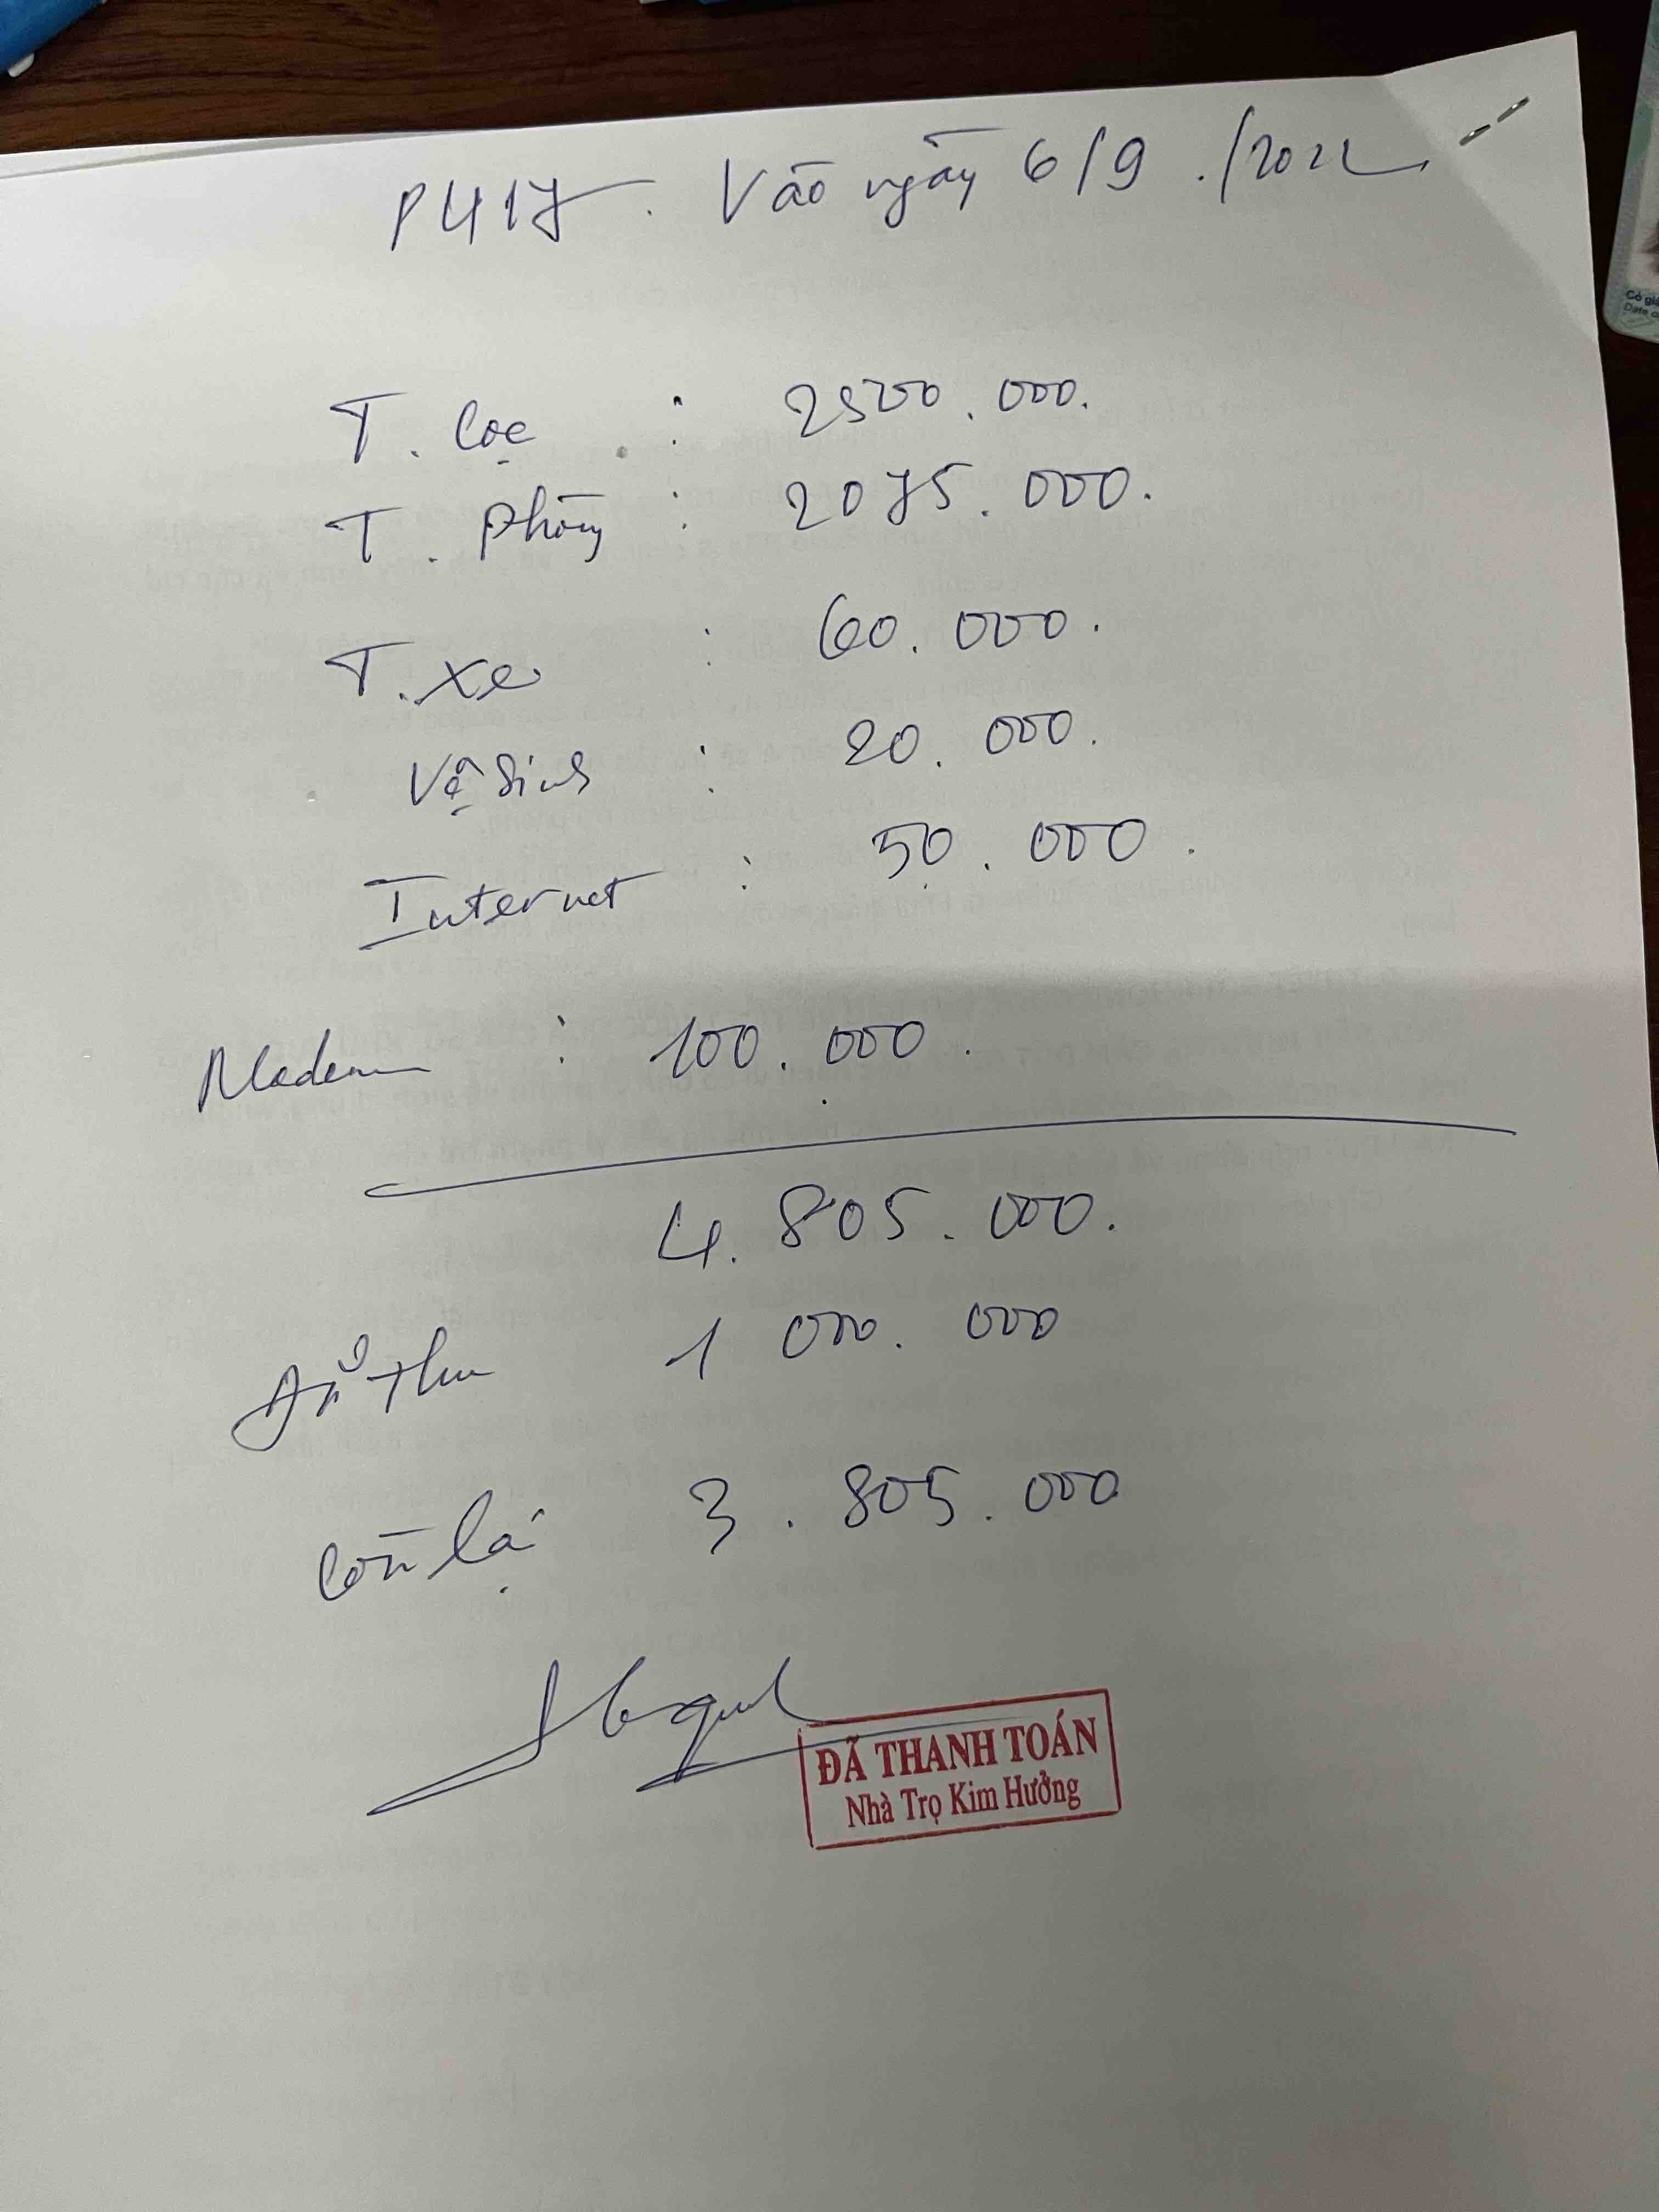 P417. Vào ngày 6/9./2022
T. Cọc : 2500.000.
T. phòng : 2075.000.
T. xe : 60.000.
Vệ sinh : 20.000.
Internet : 50.000.
Modem : 100.000.
4.805.000.
Đã thu 1 000.000
Còn lại 3.805.000
ĐÃ THANH TOÁN
Nhà Trọ Kim Hưởng